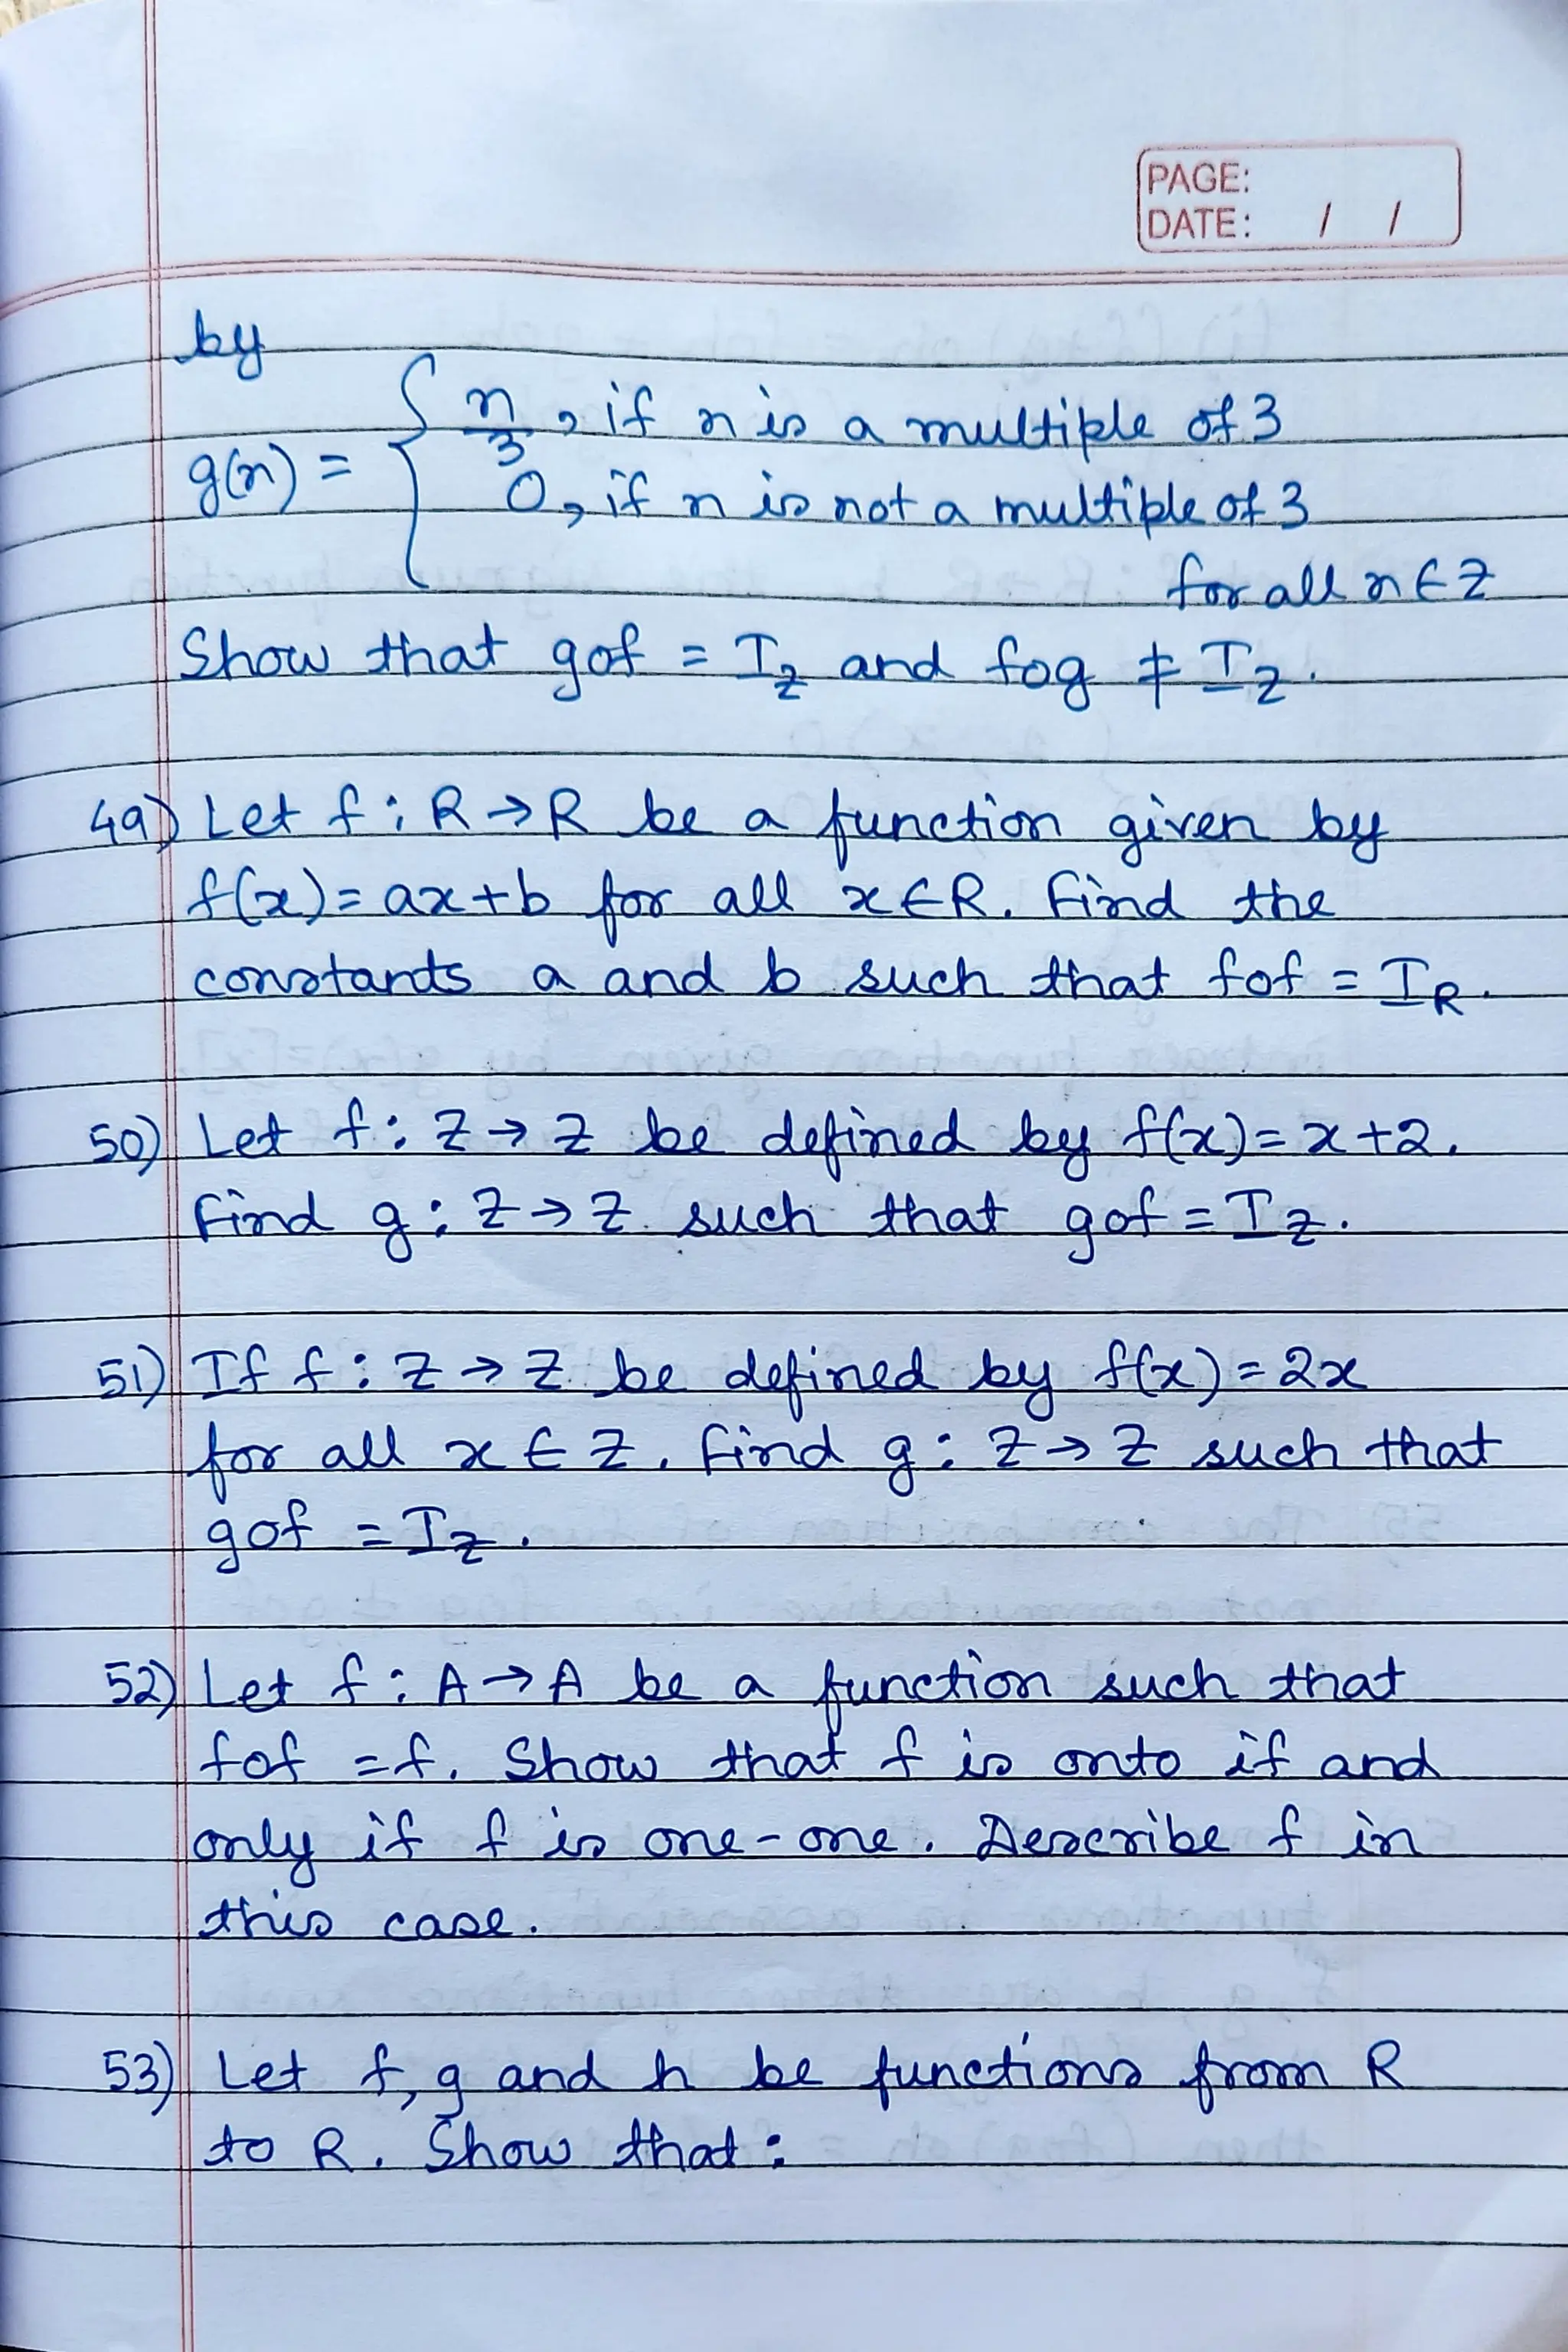 PAGE:
DATE: / /
by
g(n) = { n/3, if n is a multiple of 3
0, if n is not a multiple of 3
for all n ∈ Z
Show that gof = I_Z and fog ≠ I_Z.
49) Let f : R → R be a function given by
f(x) = ax + b for all x ∈ R. Find the
constants a and b such that fof = I_R.
50) Let f : Z → Z be defined by f(x) = x + 2.
Find g : Z → Z such that gof = I_Z.
51) If f : Z → Z be defined by f(x) = 2x
for all x ∈ Z. Find g : Z → Z such that
gof = I_Z.
52) Let f : A → A be a function such that
fof = f. Show that f is onto if and
only if f is one-one. Describe f in
this case.
53) Let f, g and h be functions from R
to R. Show that :